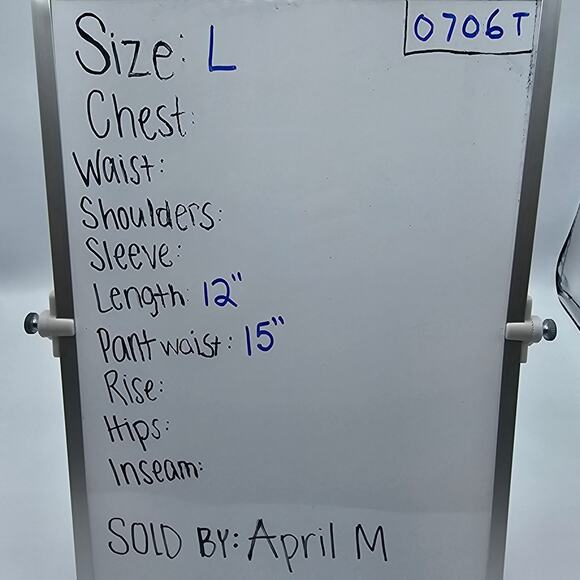 Size: L
0706T
Chest:
Waist:
Shoulders:
Sleeve:
Length: 12"
Pant waist: 15"
Rise:
Hips:
Inseam:
SOLD BY: April M